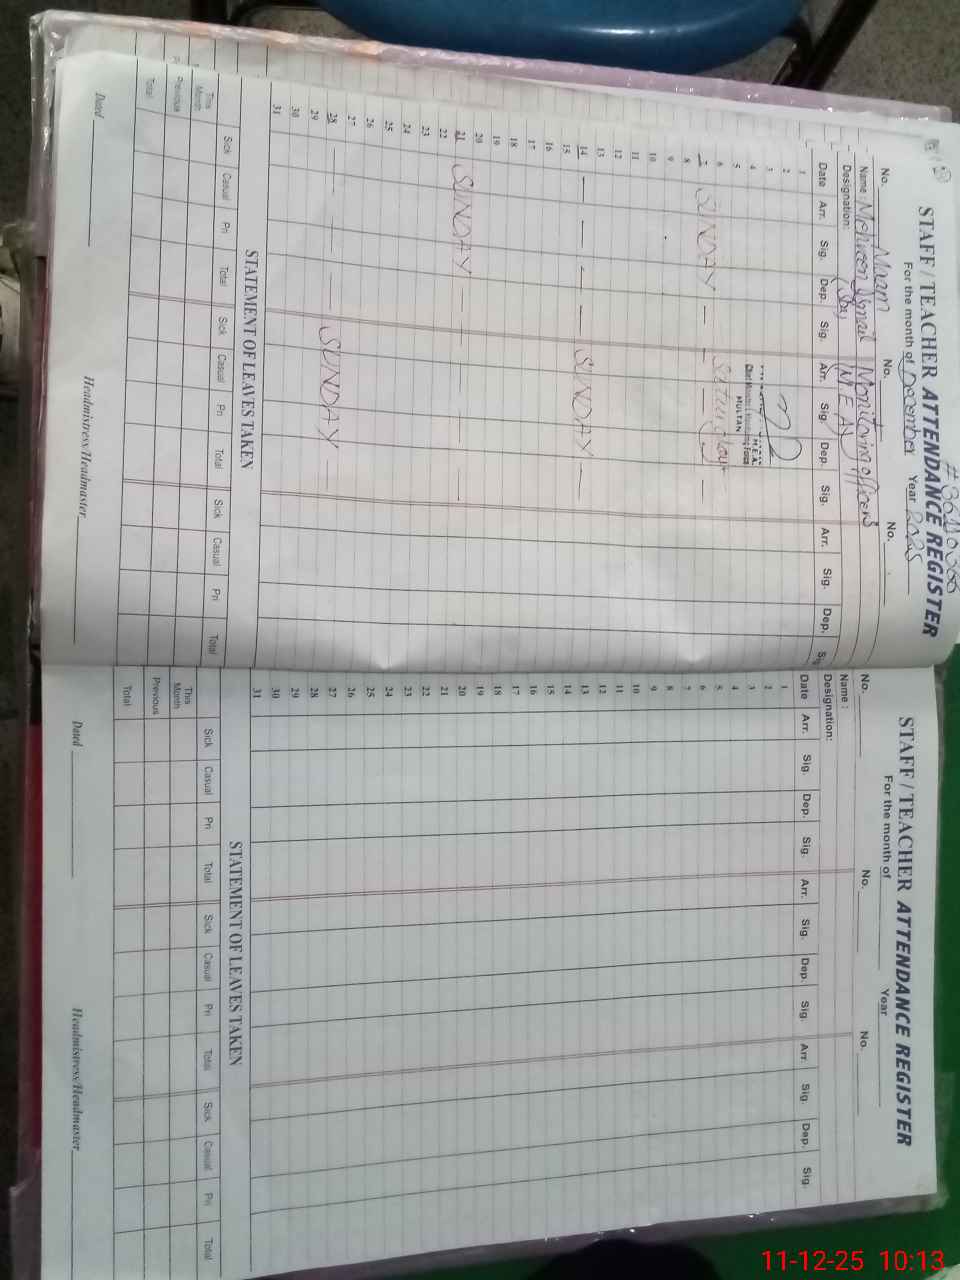 STAFF / TEACHER ATTENDANCE REGISTER
For the month of December Year 2025
No. Maam No. No.
Name : Mehreen Ismail Monitoring officers
Designation: (MEA)
Date Arr. Sig. Dep. Sig. Arr. Sig. Dep. Sig. Arr. Sig. Dep. Sig.
1
2
3
4
5 MULTAN
6 Saturday
7 SUNDAY
8
9
10
11
12
13
14 SUNDAY
15
16
17
18
19
20
21 SUNDAY
22
23
24
25
26
27
28 SUNDAY
29
30
31
STATEMENT OF LEAVES TAKEN
Sick Casual Pri Total Sick Casual Pri Total Sick Casual Pri Total
This Month
Previous
Total
Dated Headmistress/Headmaster
STAFF / TEACHER ATTENDANCE REGISTER
For the month of Year
No. No. No.
Name :
Designation:
Date Arr. Sig. Dep. Sig. Arr. Sig. Dep. Sig. Arr. Sig. Dep. Sig.
1
2
3
4
5
6
7
8
9
10
11
12
13
14
15
16
17
18
19
20
21
22
23
24
25
26
27
28
29
30
31
STATEMENT OF LEAVES TAKEN
Sick Casual Pri Total Sick Casual Pri Total Sick Casual Pri Total
This Month
Previous
Total
Dated Headmistress/Headmaster
11-12-25 10:13